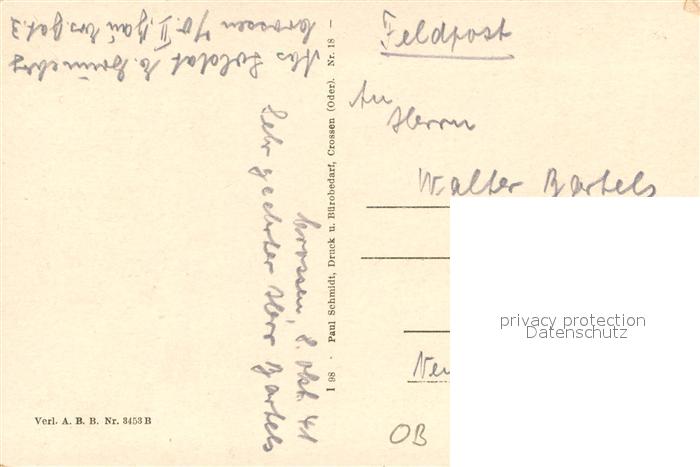 Feldpost
An
Herrn
Walter Bartels
Abs. Soldat E.
Crossen /O. II.
Crossen, 8. Okt. 41
Sehr geehrter Herr Bartels
I 98 · Paul Schmidt, Druck u. Bürobedarf, Crossen (Oder). Nr. 18 —
Verl. A. B. B. Nr. 3453 B
OB
privacy protection
Datenschutz